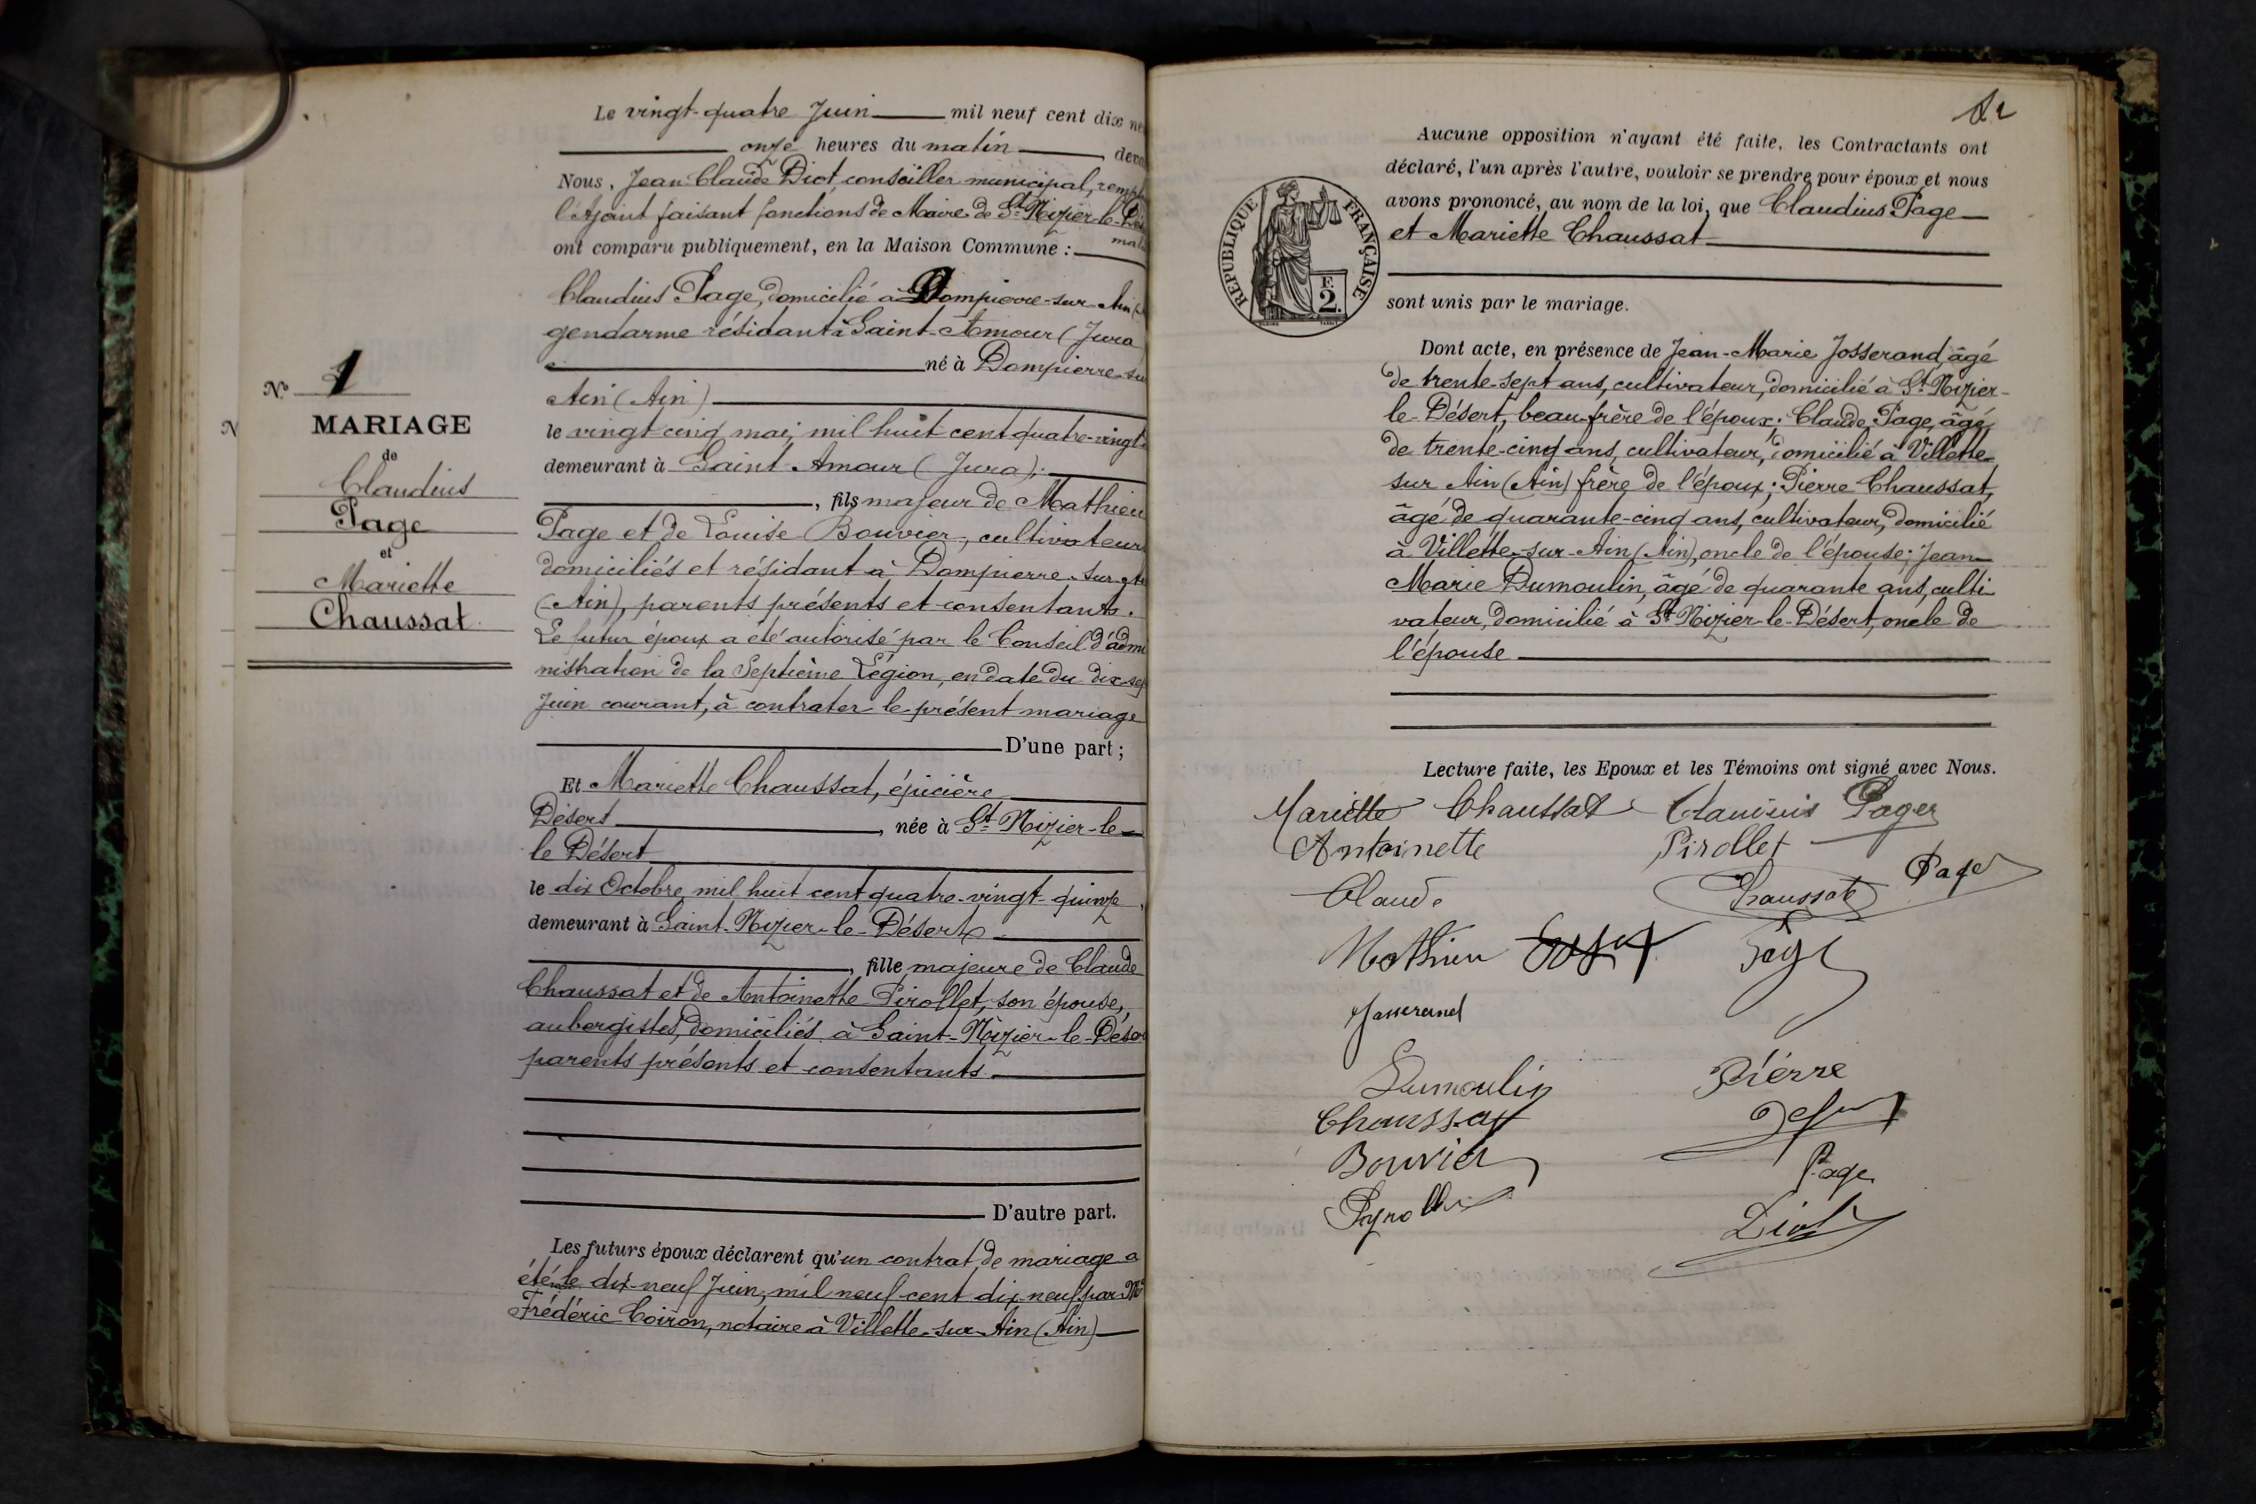 Le vingt-quatre Juin mil neuf cent dix
onze heures du matin, deva
Nous, Jean Claude Diot, conseiller municipal, rempl
l'Ajoint faisant fonctions de Maire de St Nizier-le-Dé
ont comparu publiquement, en la Maison Commune :
Claudius Page, domicilié à Dompierre-sur-Ain
gendarme résidant à Saint-Amour (Jura
né à Dompierre-su
Ain (Ain)
le vingt-cinq mai, mil huit cent quatre-vingt
demeurant à Saint-Amour (Jura),
, fils majeur de Mathieu
Page et de Louise Bouvier, cultivateurs
domiciliés et résidant à Dompierre-sur-
(Ain), parents présents et consentants.
Le futur époux a été autorisé par le Conseil d'admi
nistration de la Septième Légion, en date du dix-sep
Juin courant, à contrater le présent mariage
D'une part ;
Et Mariette Chaussat, épicière
Désert, née à St Nizier-le-
le Désert
le dix Octobre mil huit cent quatre-vingt-quinze,
demeurant à Saint-Nizier-le-Désert
, fille majeure de Claude
Chaussat et de Antoinette Pirollet, son épouse,
aubergistes, domiciliés à Saint-Nizier-le-Déser
parents présents et consentants.
D'autre part.
Les futurs époux déclarent qu'un contrat de mariage a
été le dix-neuf Juin, mil neuf cent dix-neuf par Me
Frédéric Coiron, notaire à Villette-sur-Ain (Ain)
No 1
MARIAGE
de
Claudius
Page
et
Mariette
Chaussat
Aucune opposition n'ayant été faite, les Contractants ont
déclaré, l'un après l'autre, vouloir se prendre pour époux et nous
avons prononcé, au nom de la loi, que Claudius Page
et Mariette Chaussat
sont unis par le mariage.
RÉPUBLIQUE FRANÇAISE
F.
2.
Dont acte, en présence de Jean-Marie Josserand, âgé
de trente-sept ans, cultivateur, domicilié à St Nizier-
le-Désert, beau-frère de l'époux; Claude Page, âgé
de trente-cinq ans, cultivateur, domicilié à Villette-
sur Ain (Ain) frère de l'époux; Pierre Chaussat,
âgé de quarante-cinq ans, cultivateur, domicilié
à Villette-sur-Ain (Ain), oncle de l'épouse; Jean-
Marie Dumoulin, âgé de quarante ans, culti
vateur, domicilié à St Nizier-le-Désert, oncle de
l'épouse
Lecture faite, les Epoux et les Témoins ont signé avec Nous.
Mariette Chaussat Claudius Page
Antoinette Pirollet
Claude Chaussat Page
Mathieu Page
Josserand
Dumoulin Pierre
Chaussat
Bouvier Page
Diot